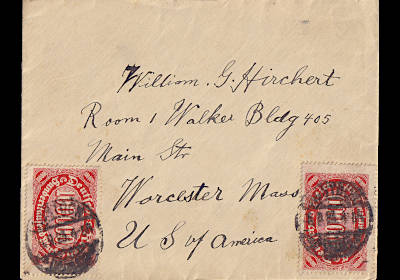 William G. Hirchert
Room 1 Walker Bldg 405
Main Str
Worcester Mass
U S of America